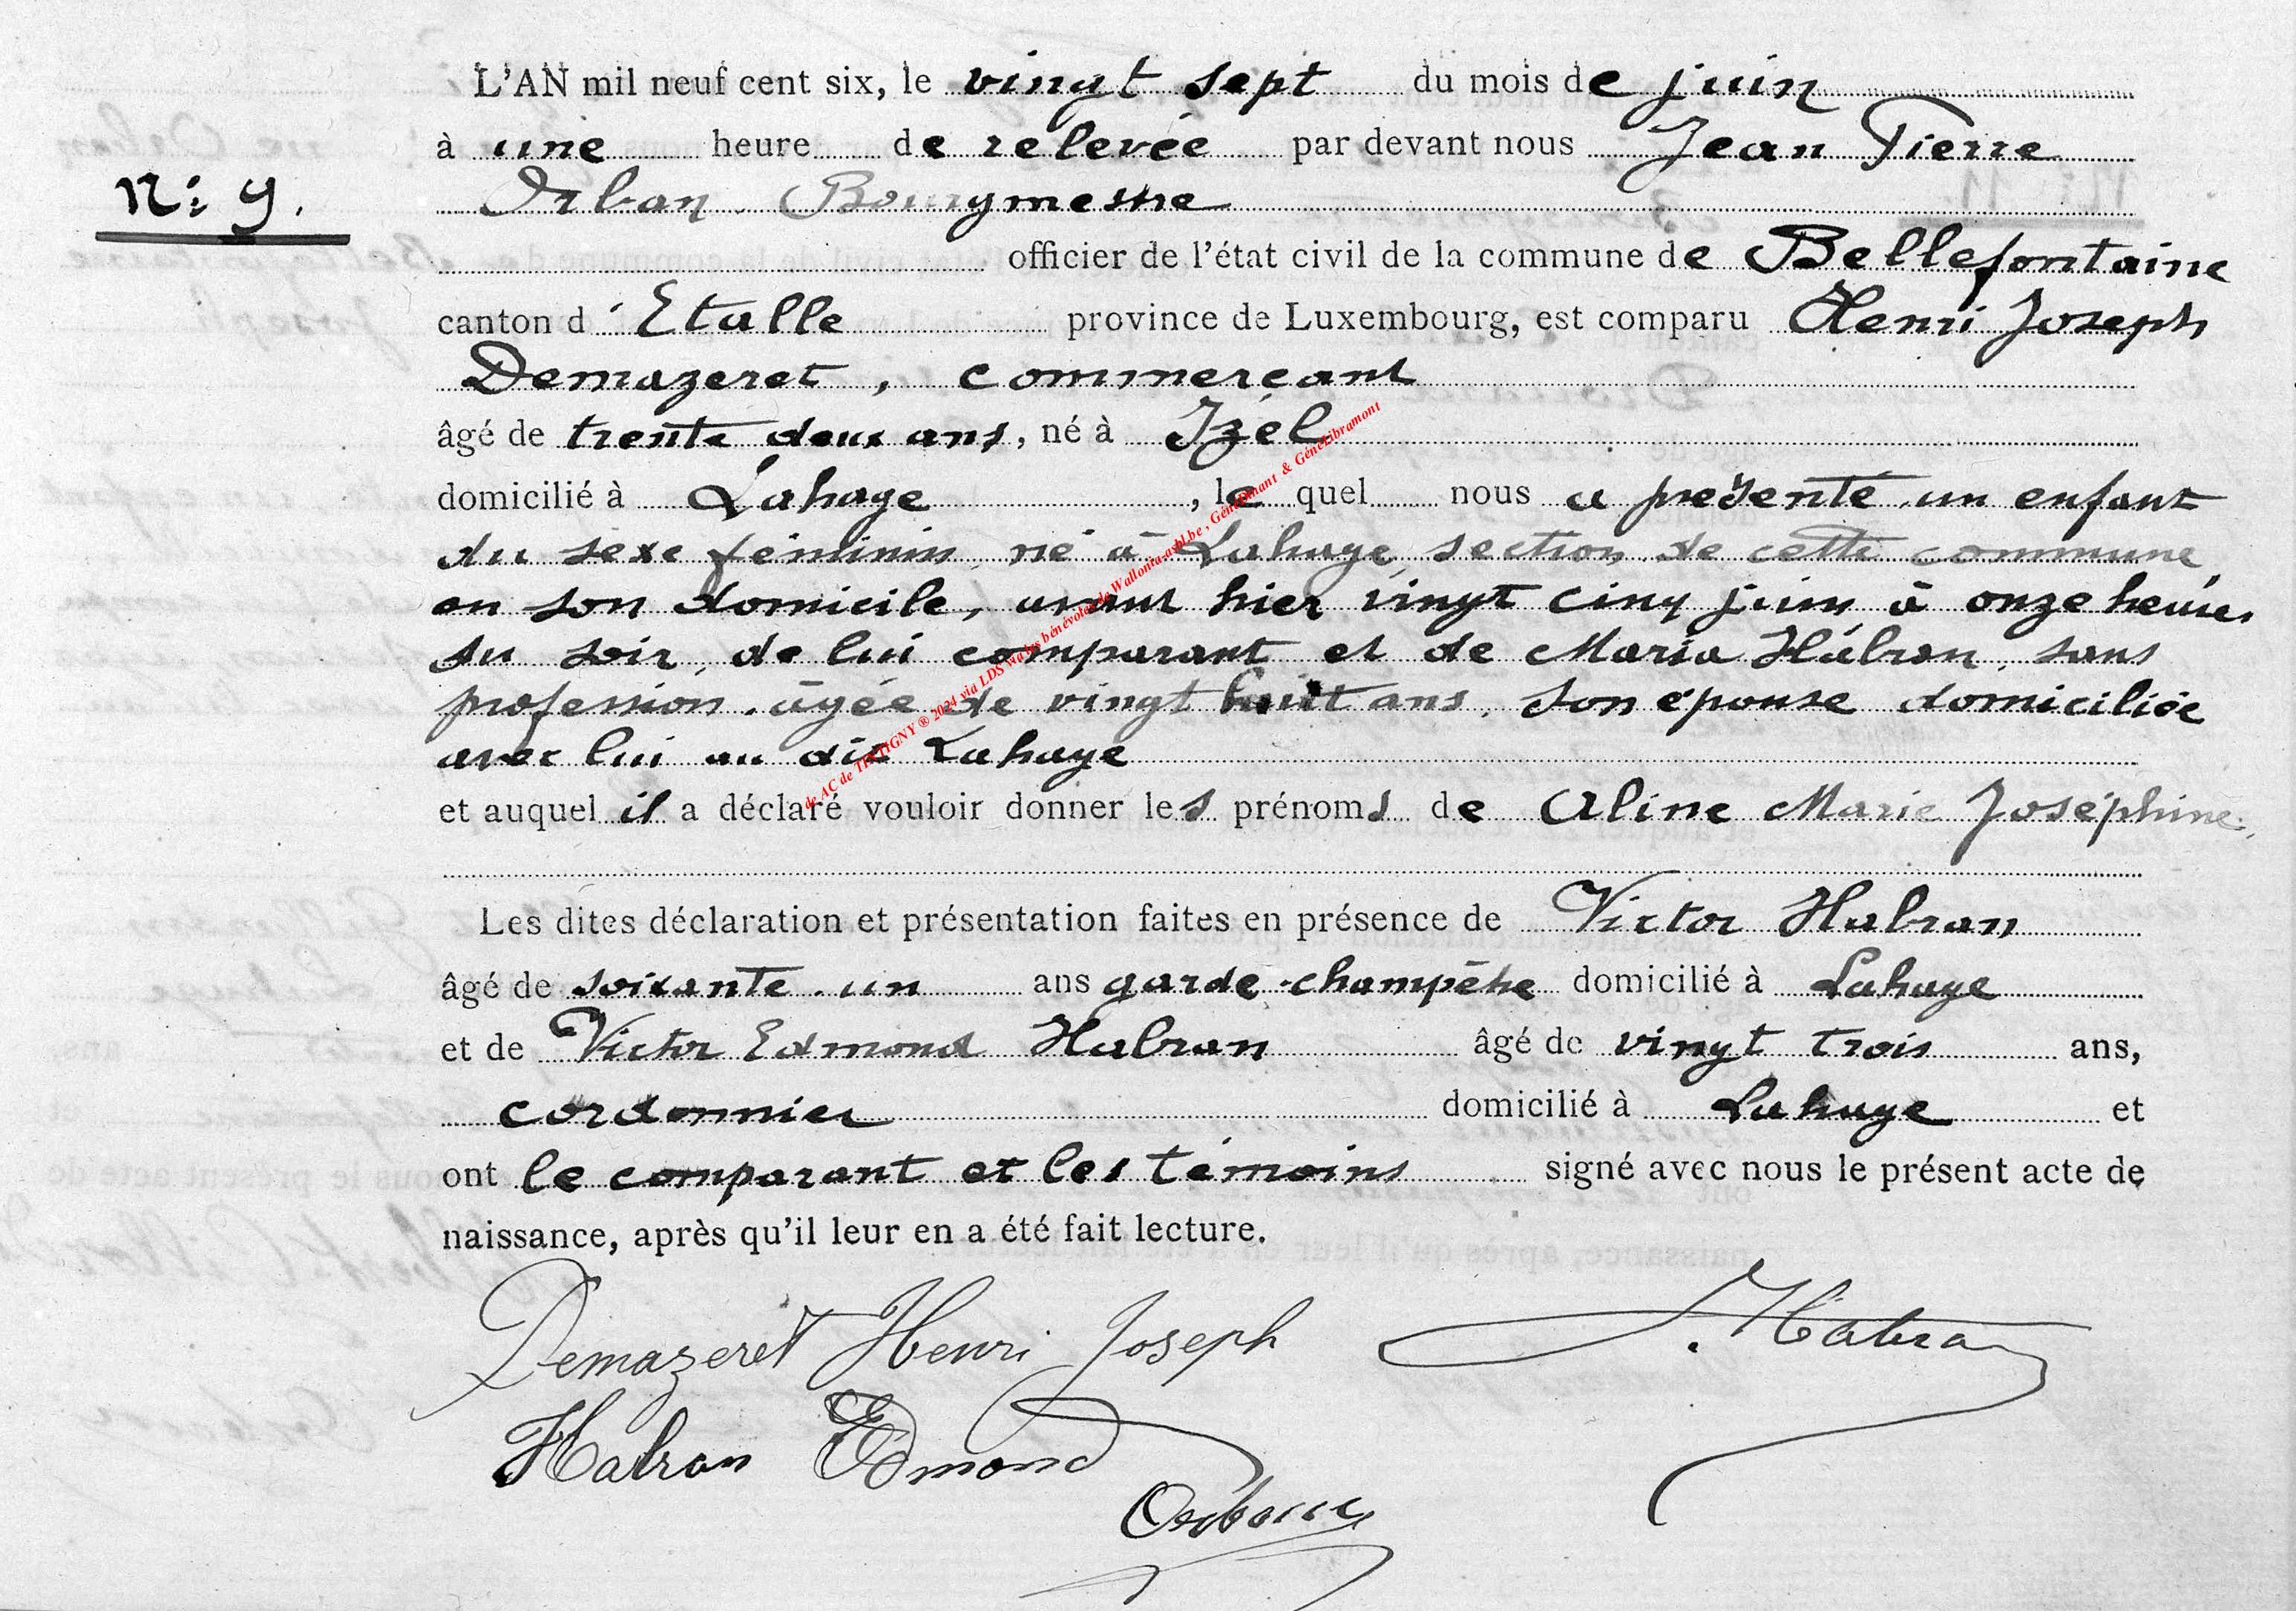 L'AN mil neuf cent six, le vingt sept du mois de juin
à une heure de relevée par devant nous Jean Pierre
N: 9.
Orban Bourgmestre
officier de l'état civil de la commune de Bellefontaine
canton d'Etalle province de Luxembourg, est comparu Henri Joseph
Demazeret, commerçant
âgé de trente deux ans, né à Izel
domicilié à Lahage, le quel nous a présenté un enfant
du sexe féminin, né à Lahage, section de cette commune
en son domicile, avant hier vingt cinq juin à onze heures
du soir, de lui comparant et de Maria Habran, sans
profession, âgée de vingt huit ans, son épouse domiciliée
avec lui au dit Lahage
et auquel il a déclaré vouloir donner les prénoms de Aline Marie Joséphine.
Les dites déclaration et présentation faites en présence de Victor Habran
âgé de soixante un ans garde-champêtre domicilié à Lahage
et de Victor Edmond Habran âgé de vingt trois ans,
cordonnier domicilié à Lahage et
ont le comparant et les témoins signé avec nous le présent acte de
naissance, après qu'il leur en a été fait lecture.
Demazeret Henri Joseph Habran
Habran Edmond
Orban
de AC de TINTIGNY ® 2024 via LDS via les bénévoles de Wallonia-asbl.be, GénéDinant & GénéLibramont